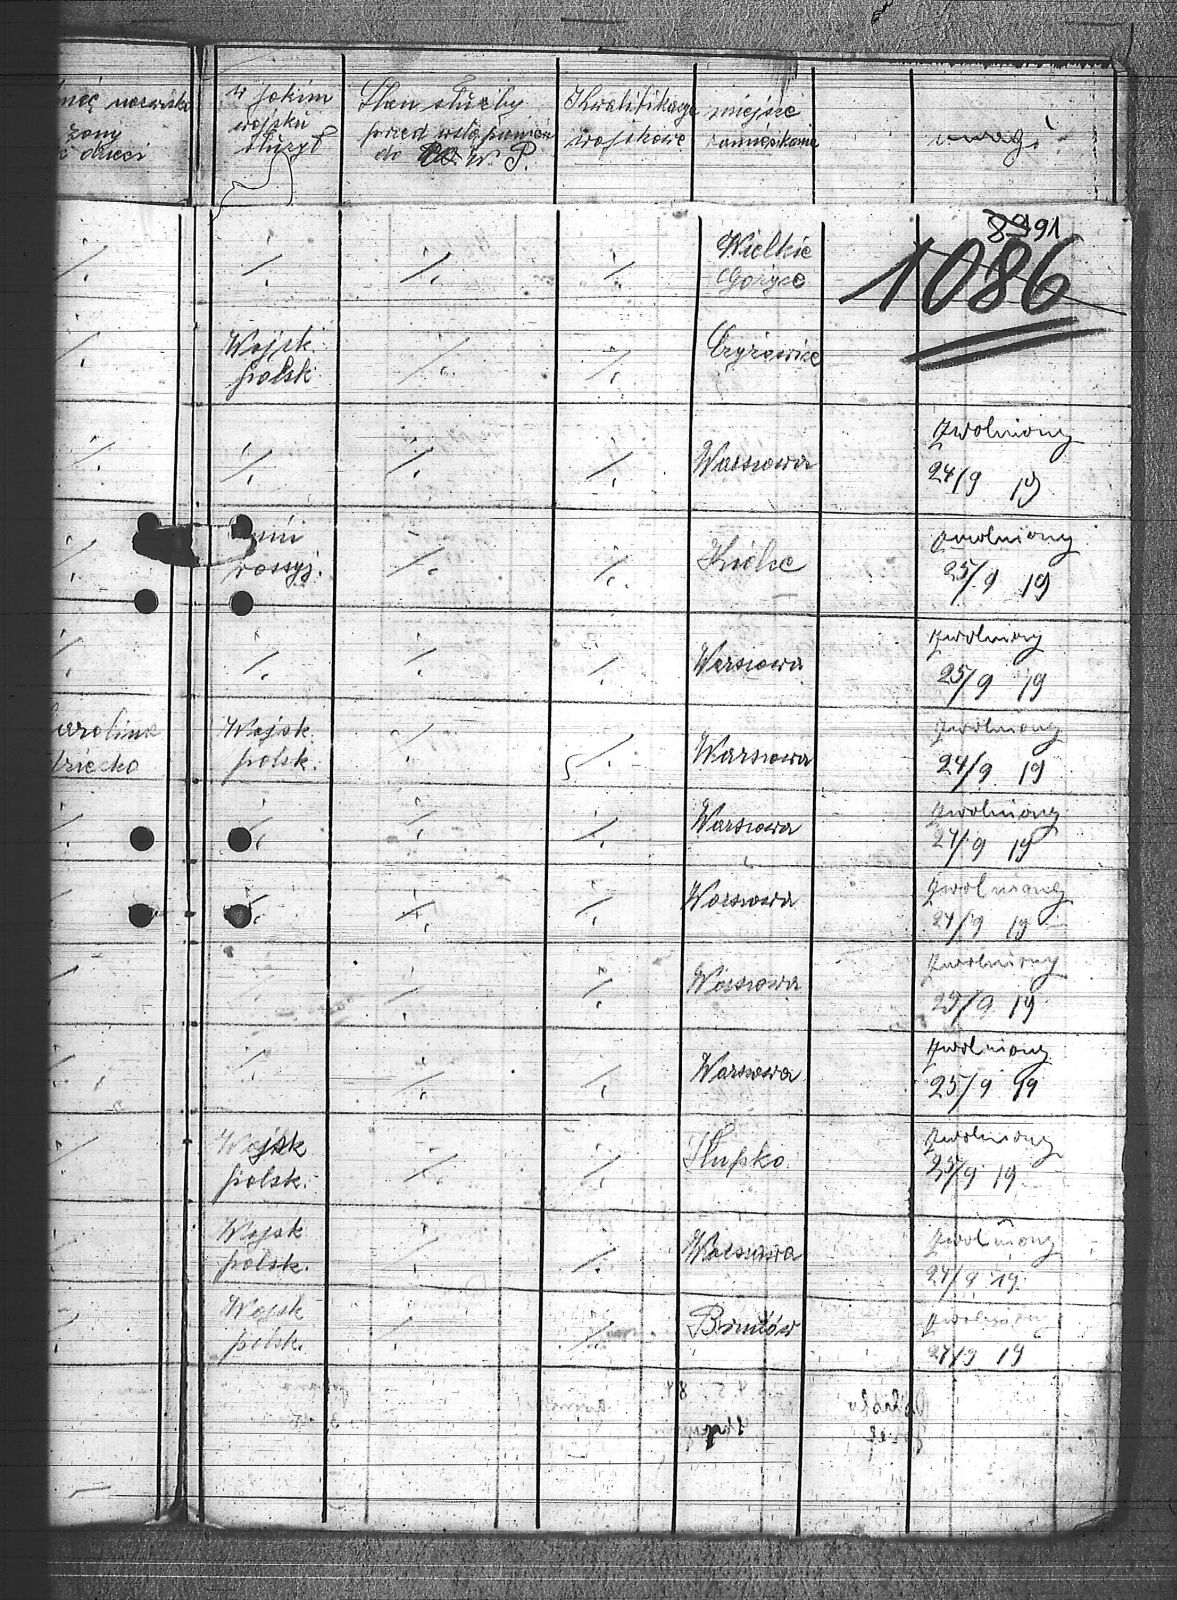 żony
i dzieci
w jakim
wojsku
służył
Stan służby
przed wstąpieniem
do W. P.
Kwalifikacye
wojskowe
miejsce
zamieszkania
uwagi
8991
1086
Wielkie
Gorzyce
Wojsk
polsk
Czyżowice
Warszowa
Zwolniony
24/9 19
rossyj.
Zwolniony
25/9 19
Warszowa
Zwolniony
25/9 19
Karolina
dziecko
Wojsk
polsk.
Warszowa
Zwolniony
24/9 19
Warszowa
Zwolniony
27/9 19
Warszowa
Zwolniony
27/9 19
Warszowa
Zwolniony
25/9 19
Warszowa
Zwolniony
25/9 19
Wojsk
polsk.
Słupko
Zwolniony
25/9 19
Wojsk
polsk.
Warszowa
Zwolniony
27/9 19
Wojsk
polsk.
Zwolniony
27/9 19